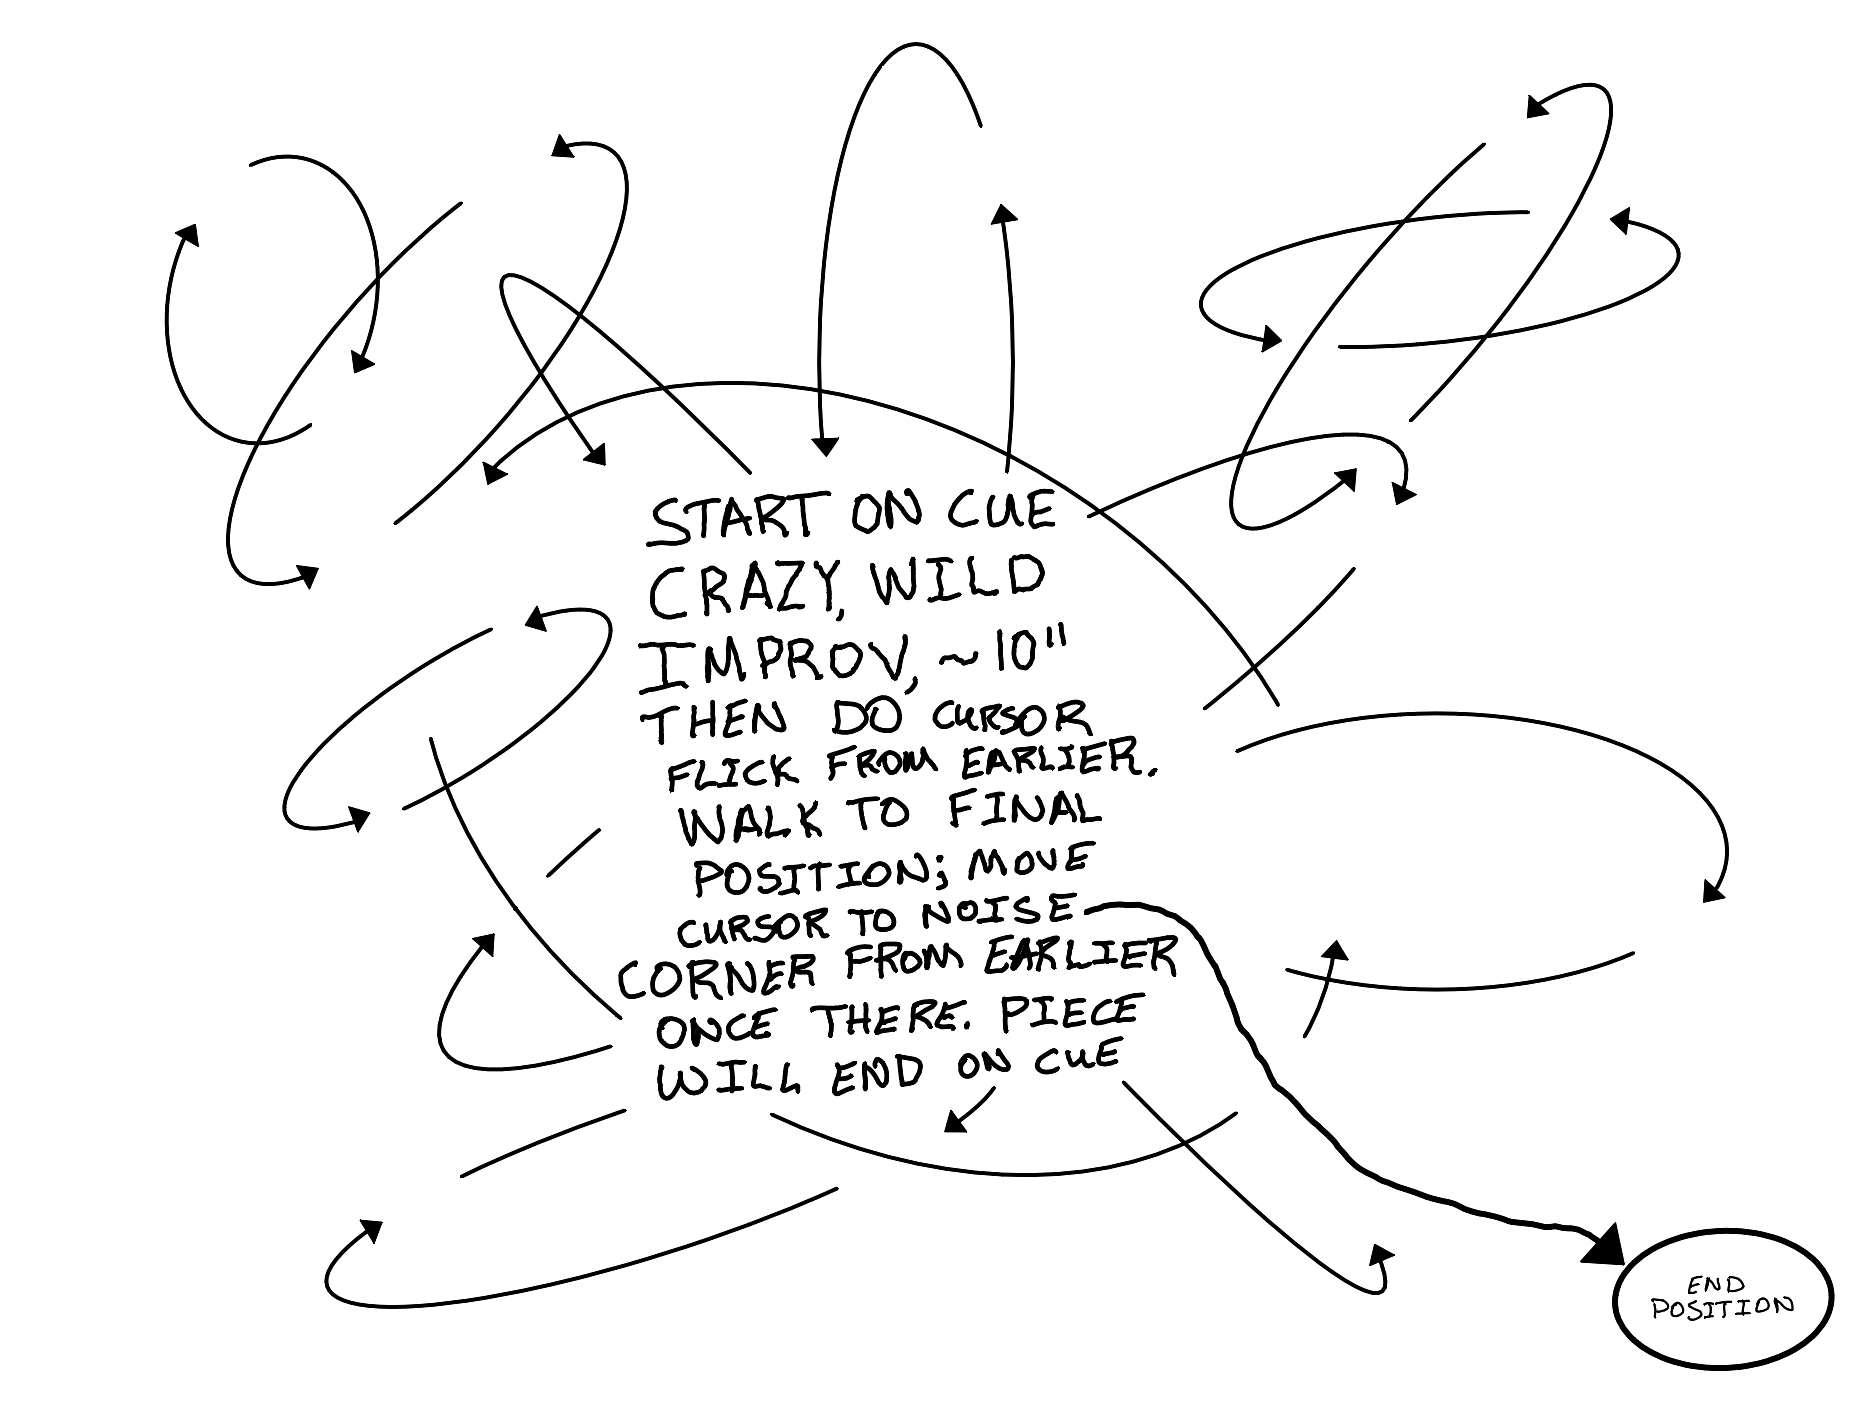 START ON CUE
CRAZY, WILD
IMPROV, ~10"
THEN DO CURSOR
FLICK FROM EARLIER.
WALK TO FINAL
POSITION; MOVE
CURSOR TO NOISE
CORNER FROM EARLIER
ONCE THERE. PIECE
WILL END ON CUE
END
POSITION